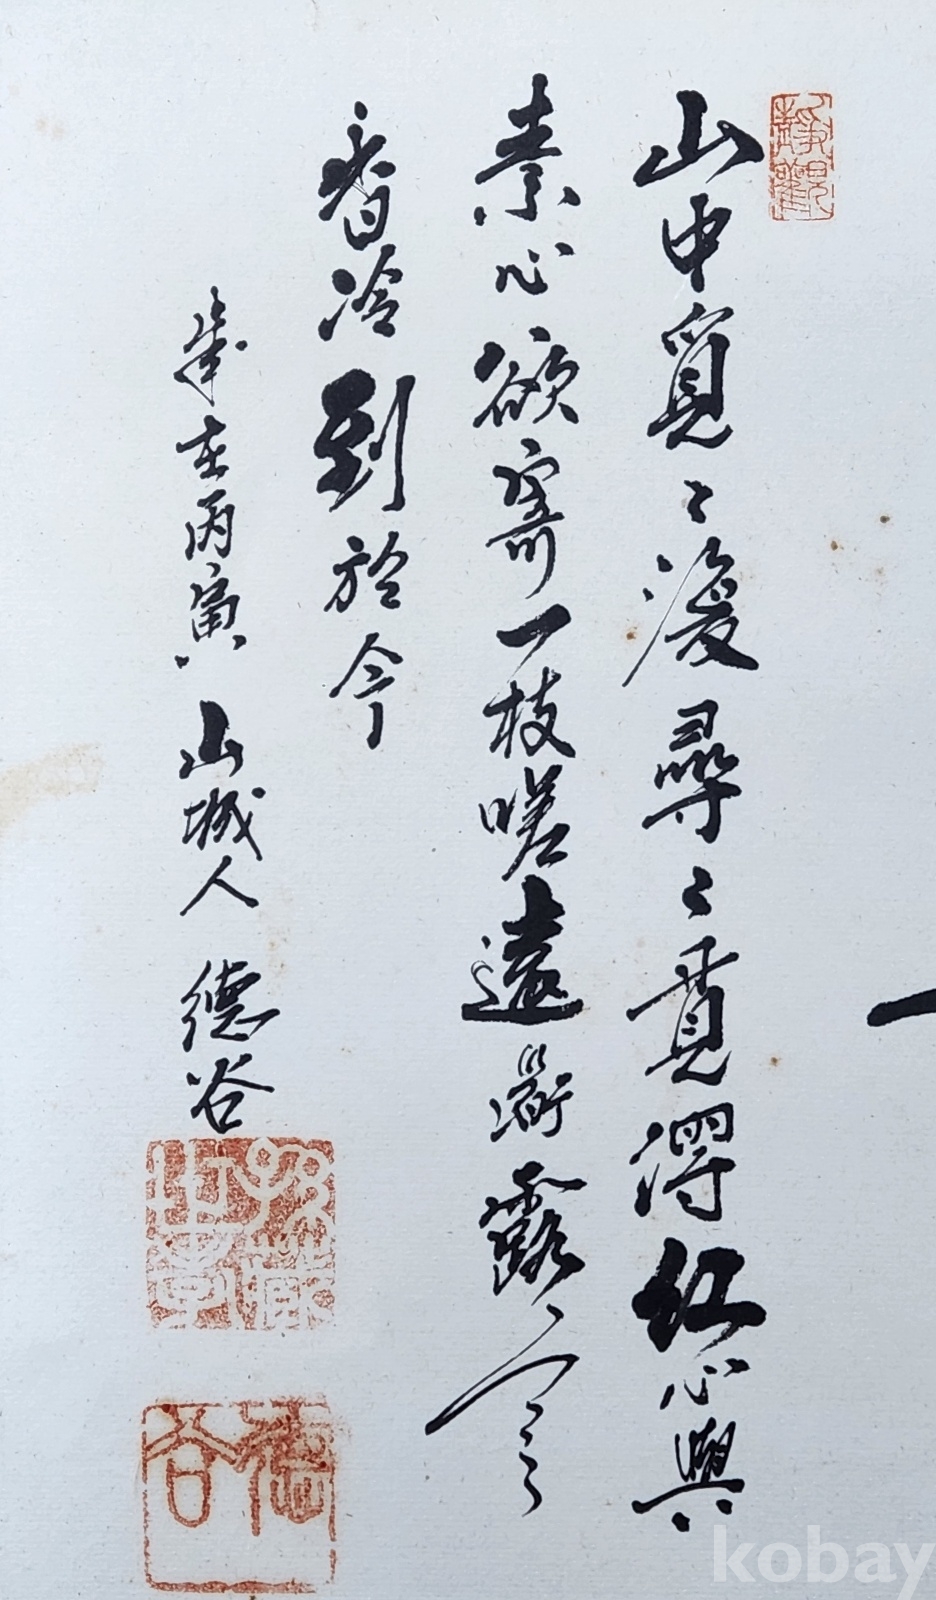 靜觀
山中覓〻復尋〻覔得紅心與
素心欲寄一枝嗟遠衜露寒
香冷到於今
歲在丙寅 山城人 德谷
德谷
kobay